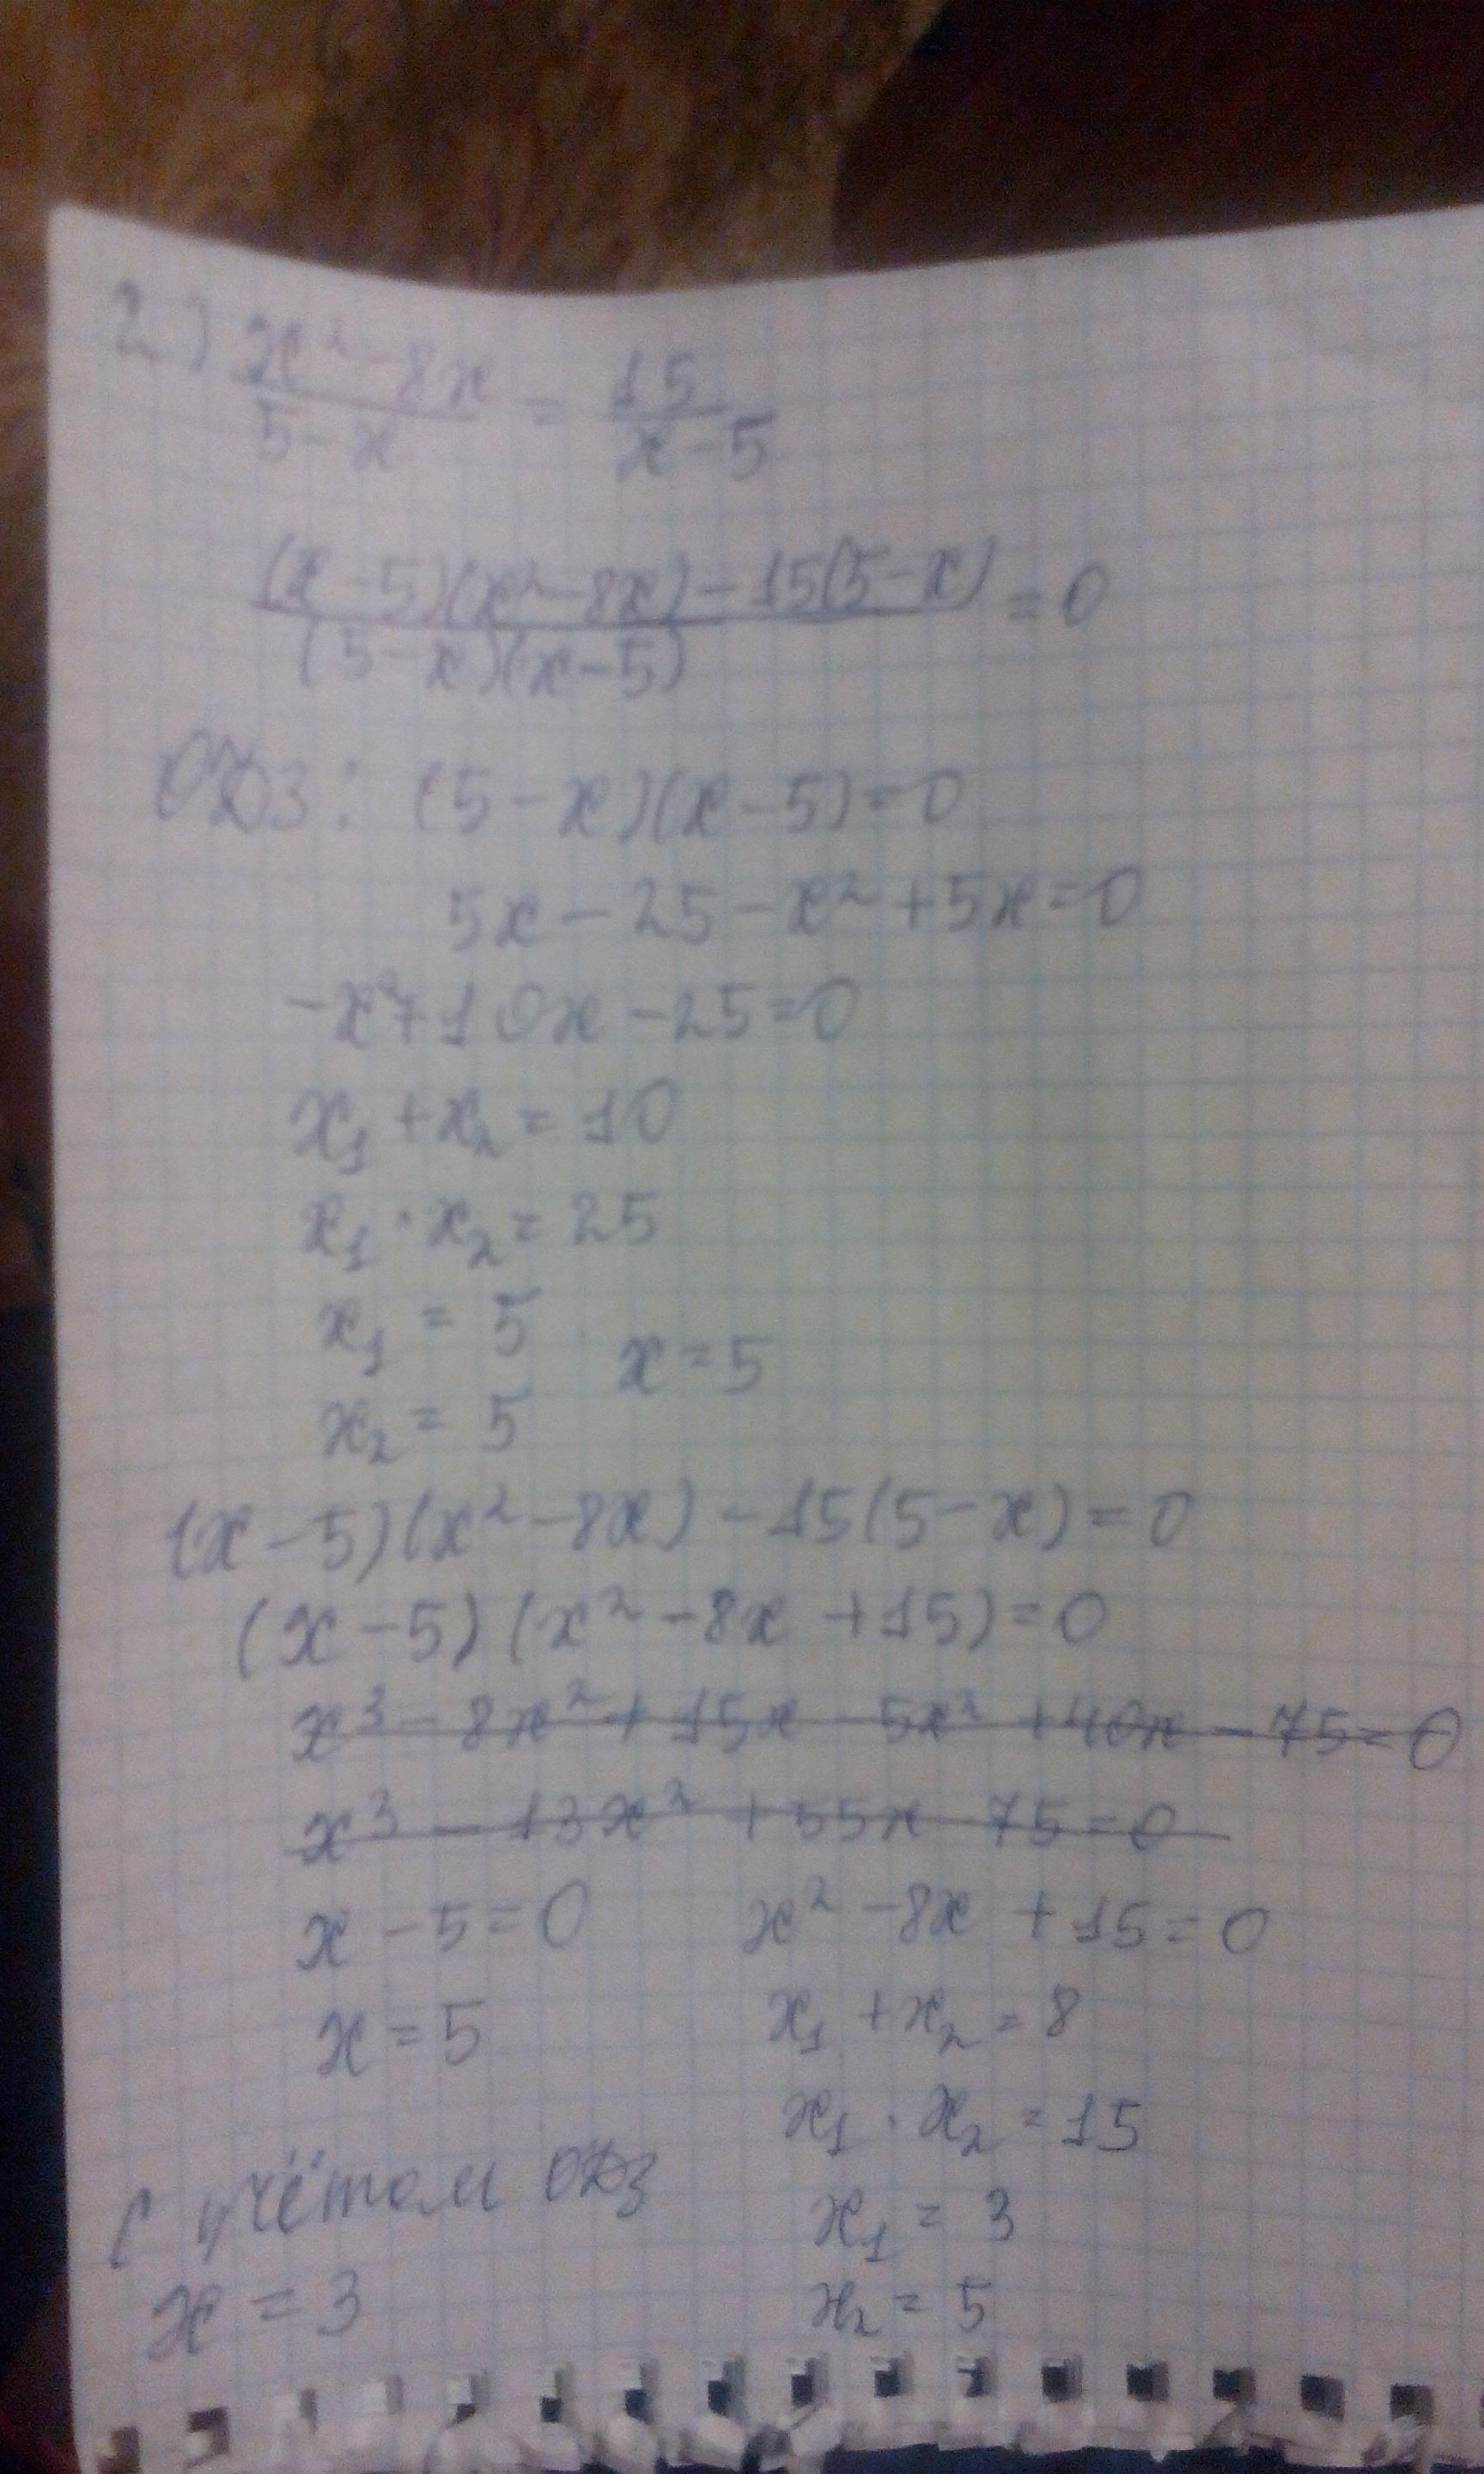 2.) (x² - 8x)/(5 - x) = 15/(x - 5)
((x - 5)(x² - 8x) - 15(5 - x))/((5 - x)(x - 5)) = 0
ОДЗ: (5 - x)(x - 5) = 0
5x - 25 - x² + 5x = 0
-x² + 10x - 25 = 0
x₁ + x₂ = 10
x₁ · x₂ = 25
x₁ = 5
x = 5
x₂ = 5
(x - 5)(x² - 8x) - 15(5 - x) = 0
(x - 5)(x² - 8x + 15) = 0
x³ - 8x² + 15x - 5x² + 40x - 75 = 0
x³ - 13x² + 55x - 75 = 0
x - 5 = 0 x² - 8x + 15 = 0
x = 5 x₁ + x₂ = 8
x₁ · x₂ = 15
С учётом ОДЗ x₁ = 3
x = 3 x₂ = 5